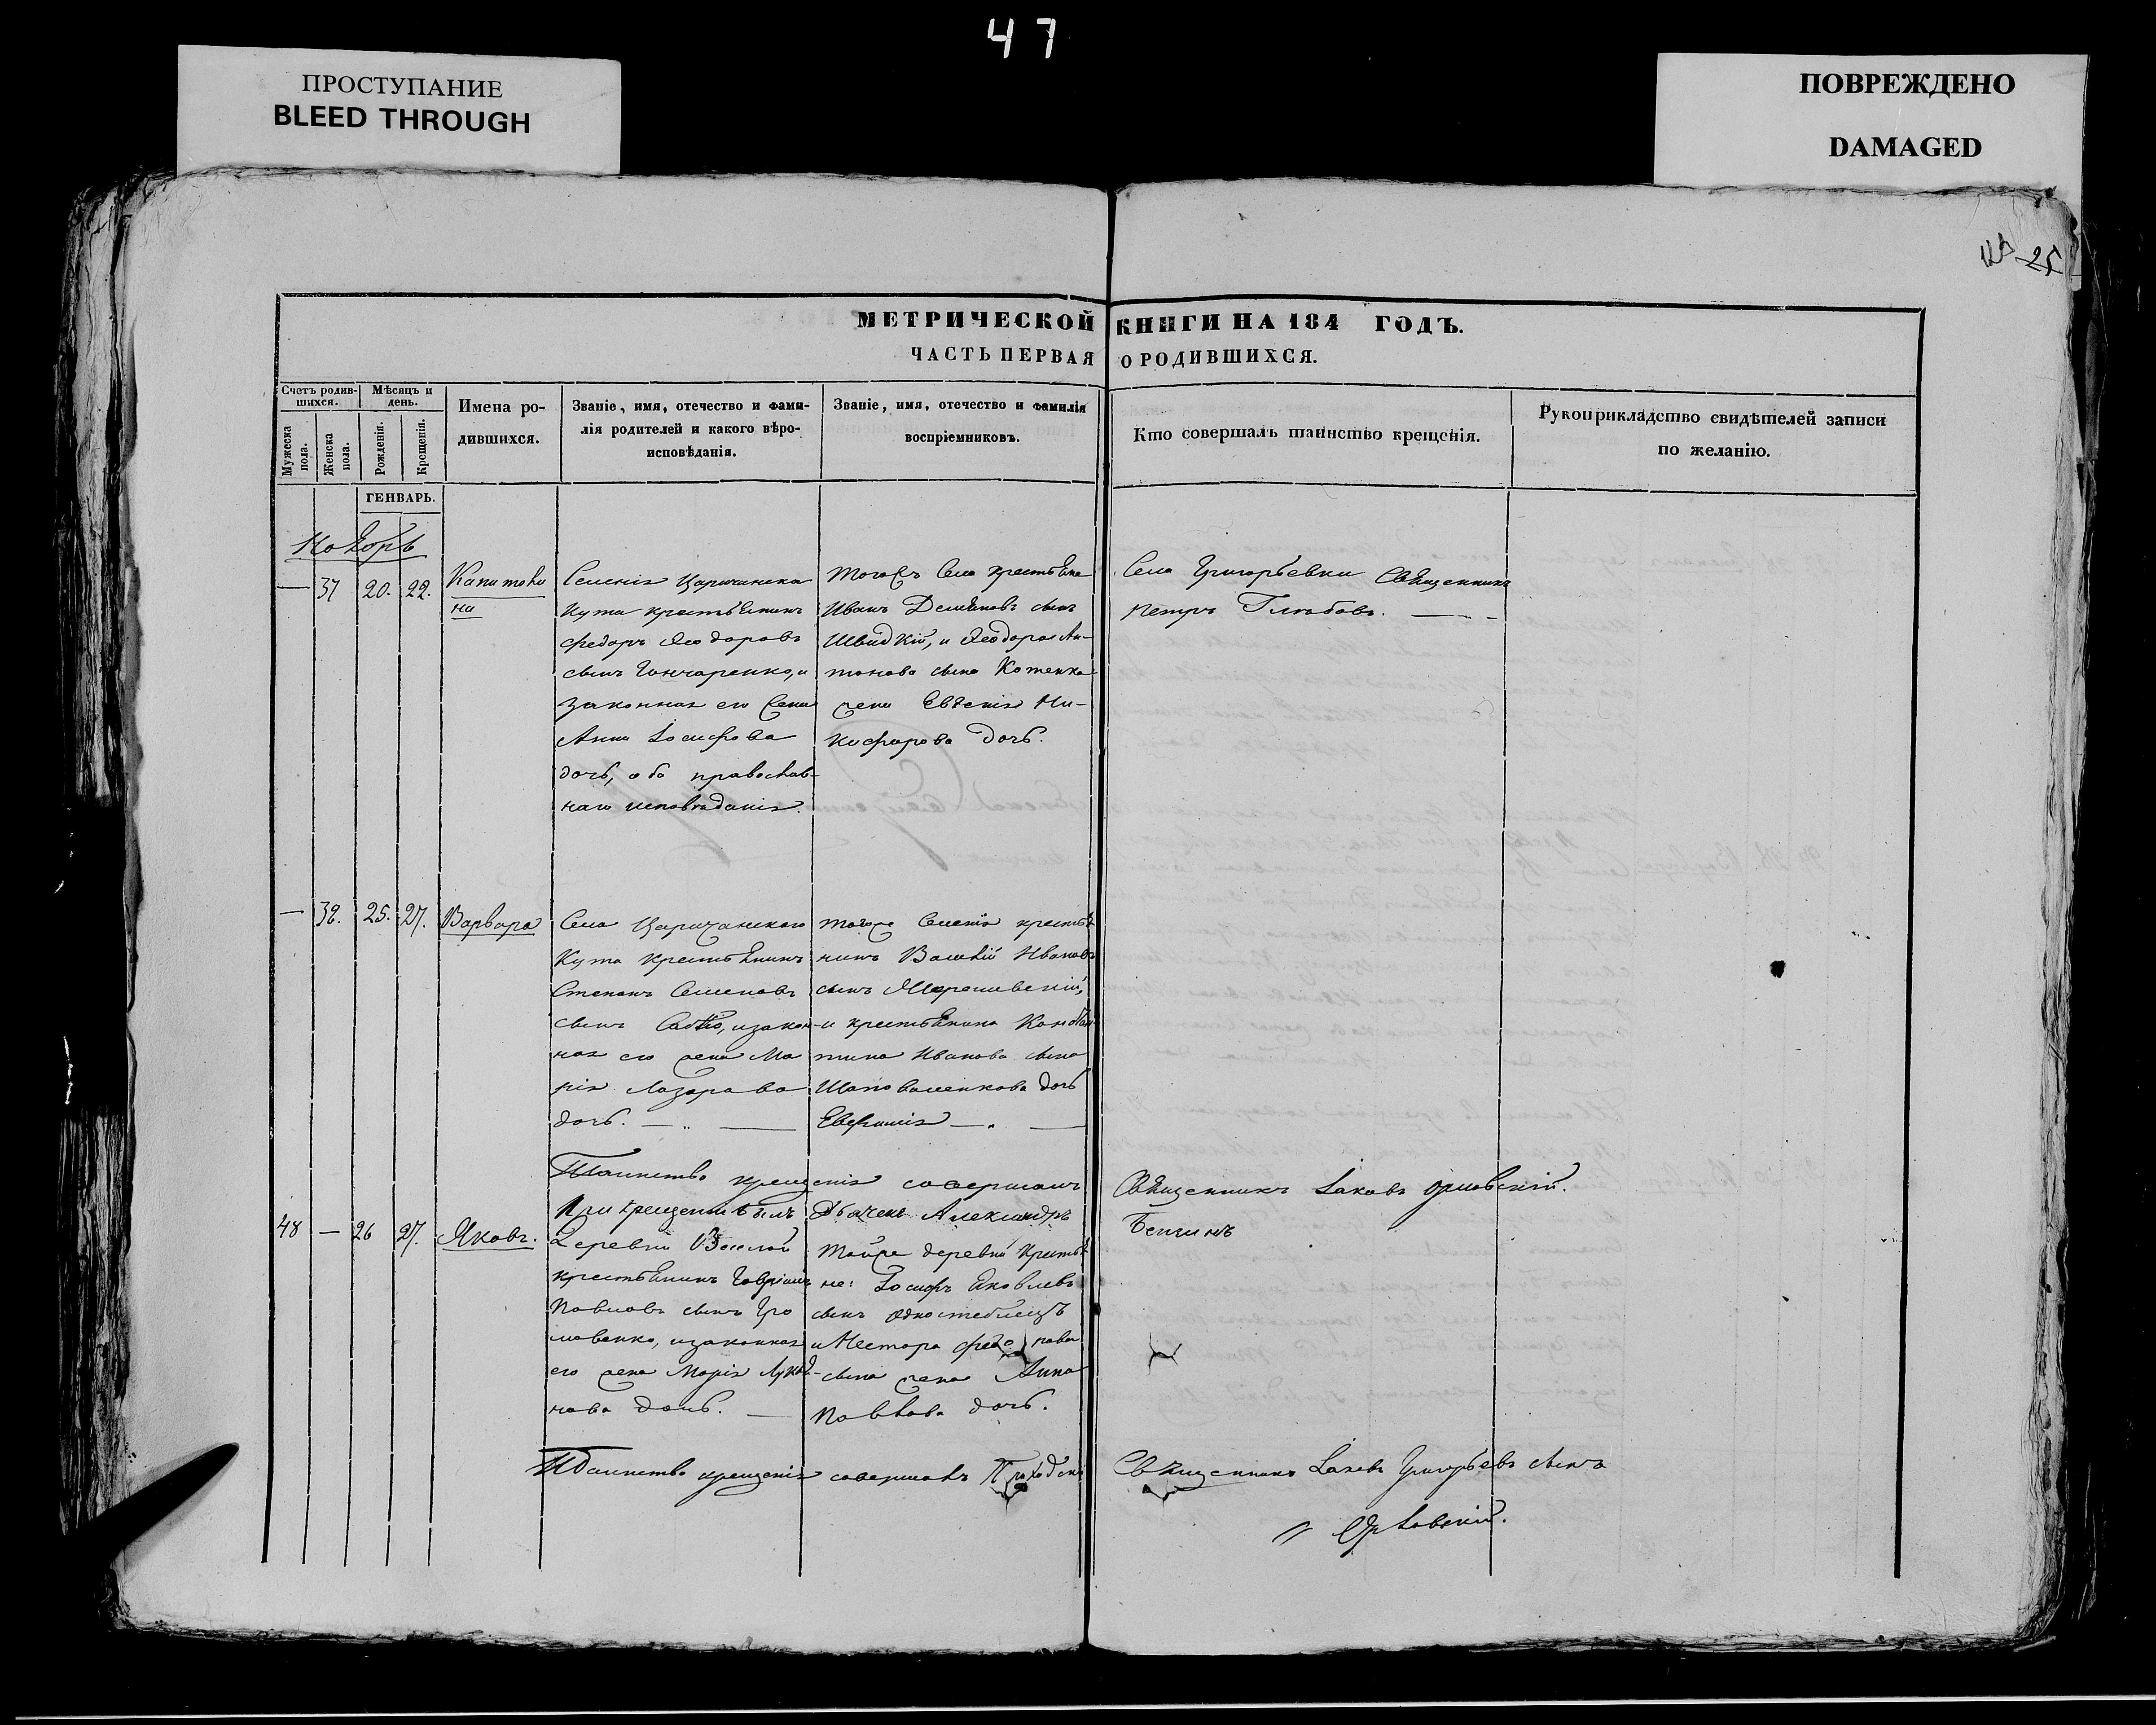 47
ПРОСТУПАНИЕ
BLEED THROUGH
ПОВРЕЖДЕНО
DAMAGED
25
МЕТРИЧЕСКОЙ КНИГИ НА 184 ГОДЪ.
ЧАСТЬ ПЕРВАЯ О РОДИВШИХСЯ.
Счетъ родив-
шихся.
Мужеска
пола.
Женска
пола.
Мѣсяцъ и
день.
Рожденія.
Крещенія.
Имена ро-
дившихся.
Званіе, имя, отечество и фами-
лія родителей и какого вѣро-
исповѣданія.
Званіе, имя, отечество и фамилія
воспріемниковъ.
Кто совершалъ таинство крещенія.
Рукоприкладство свидѣтелей записи
по желанію.
ГЕНВАРЬ.
Ноябрь
— 37 20. 22. Капитоли
на
Селенія Царичанска
Кута крестьянинъ
Федоръ Ѳеодоровъ
сынъ Гончаренко, и
законная его жена
Анна Іосифова
дочь, оба православ-
наго исповѣданія.
тогожъ села крестьяне
Иванъ Демьяновъ сынъ
Швидкій, и Ѳеодора Ан-
тонова сына Котенка
жена Евгенія Ни-
кифорова дочь.
Села Григорьевки Священникъ
Петръ Глѣбовъ.
— 38. 25. 27. Варвара
Села Царичанского
Кута крестьянинъ
Степанъ Семеновъ
сынъ, и закон-
ная его жена Ма
рія Лазарова
дочь.
тогоже селенія крестья
нинъ Василій Ивановъ
сынъ
и крестьянина Констан
тина Иванова сына
Шаповаленкова дочь
Евфимія
Таинство крещенія совершалъ
Священникъ Іаковъ Орловскій.
При крещеніи былъ Дьячекъ Александръ
48 — 26 27. Яковъ.
Деревни
крестьянинъ Гавріилъ
Павловъ сынъ Гро
мовенко, и законная
его жена Марія
нова дочь.
тойже деревни крестья
не: Іосифъ Яковлевъ
сынъ
и Нестора Федорова
сына жена Анна
Павлова дочь.
Таинство крещенія совершалъ
Священникъ Іаковъ Григорьевъ сынъ
Орловскій.